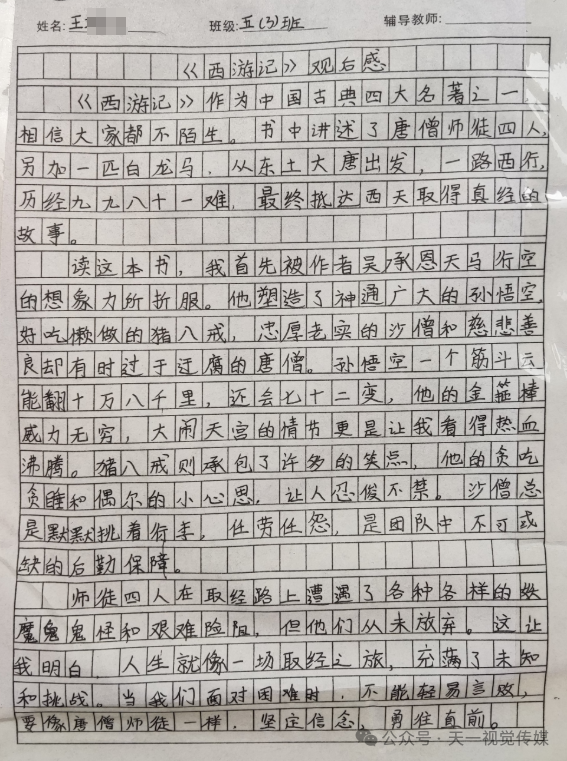 姓名: 王 班级: 五(3)班 辅导教师:
《西游记》观后感
《西游记》作为中国古典四大名著之一
相信大家都不陌生。书中讲述了唐僧师徒四人,
另加一匹白龙马,从东土大唐出发,一路西行,
历经九九八十一难,最终抵达西天取得真经的
故事。
读这本书,我首先被作者吴承恩天马行空
的想象力所折服。他塑造了神通广大的孙悟空,
好吃懒做的猪八戒,忠厚老实的沙僧和慈悲善
良却有时过于迂腐的唐僧。孙悟空一个筋斗云
能翻十万八千里,还会七十二变,他的金箍棒
威力无穷,大闹天宫的情节更是让我看得热血
沸腾。猪八戒则承包了许多的笑点,他的贪吃
贪睡和偶尔的小心思,让人忍俊不禁。沙僧总
是默默挑着行李,任劳任怨,是团队中不可或
缺的后勤保障。
师徒四人在取经路上遭遇了各种各样的妖
魔鬼怪和艰难险阻,但他们从未放弃。这让
我明白,人生就像一场取经之旅,充满了未知
和挑战。当我们面对困难时,不能轻易言败,
要像唐僧师徒一样,坚定信念,勇往直前。
公众号·天一视觉传媒